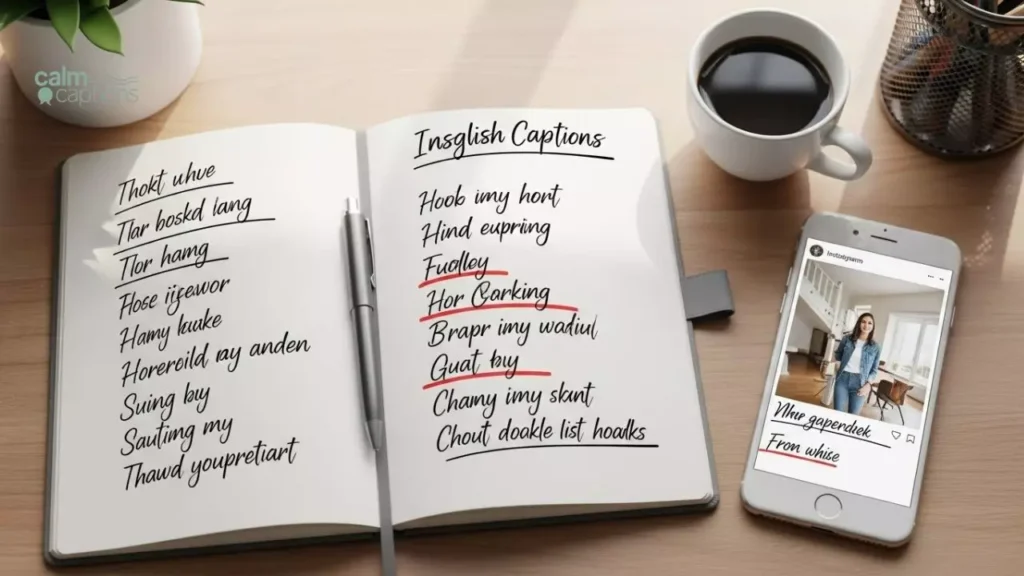 calm
captions
Thokt uhve
Tlar boskd lang
Tlor hamg
Hose ijsewor
Hamy kuake
Horeroild ray anden
Suing buy
Sauting my
Thawd youpretiart
Insglish Captions
Hoob imy hort
Hind eupring
Fudley
Hor Carking
Brapr imy wadiul
Guat buy
Chamy imy skint
Chout doakle list hoalks
Nhur gaperdiek
Fron whise